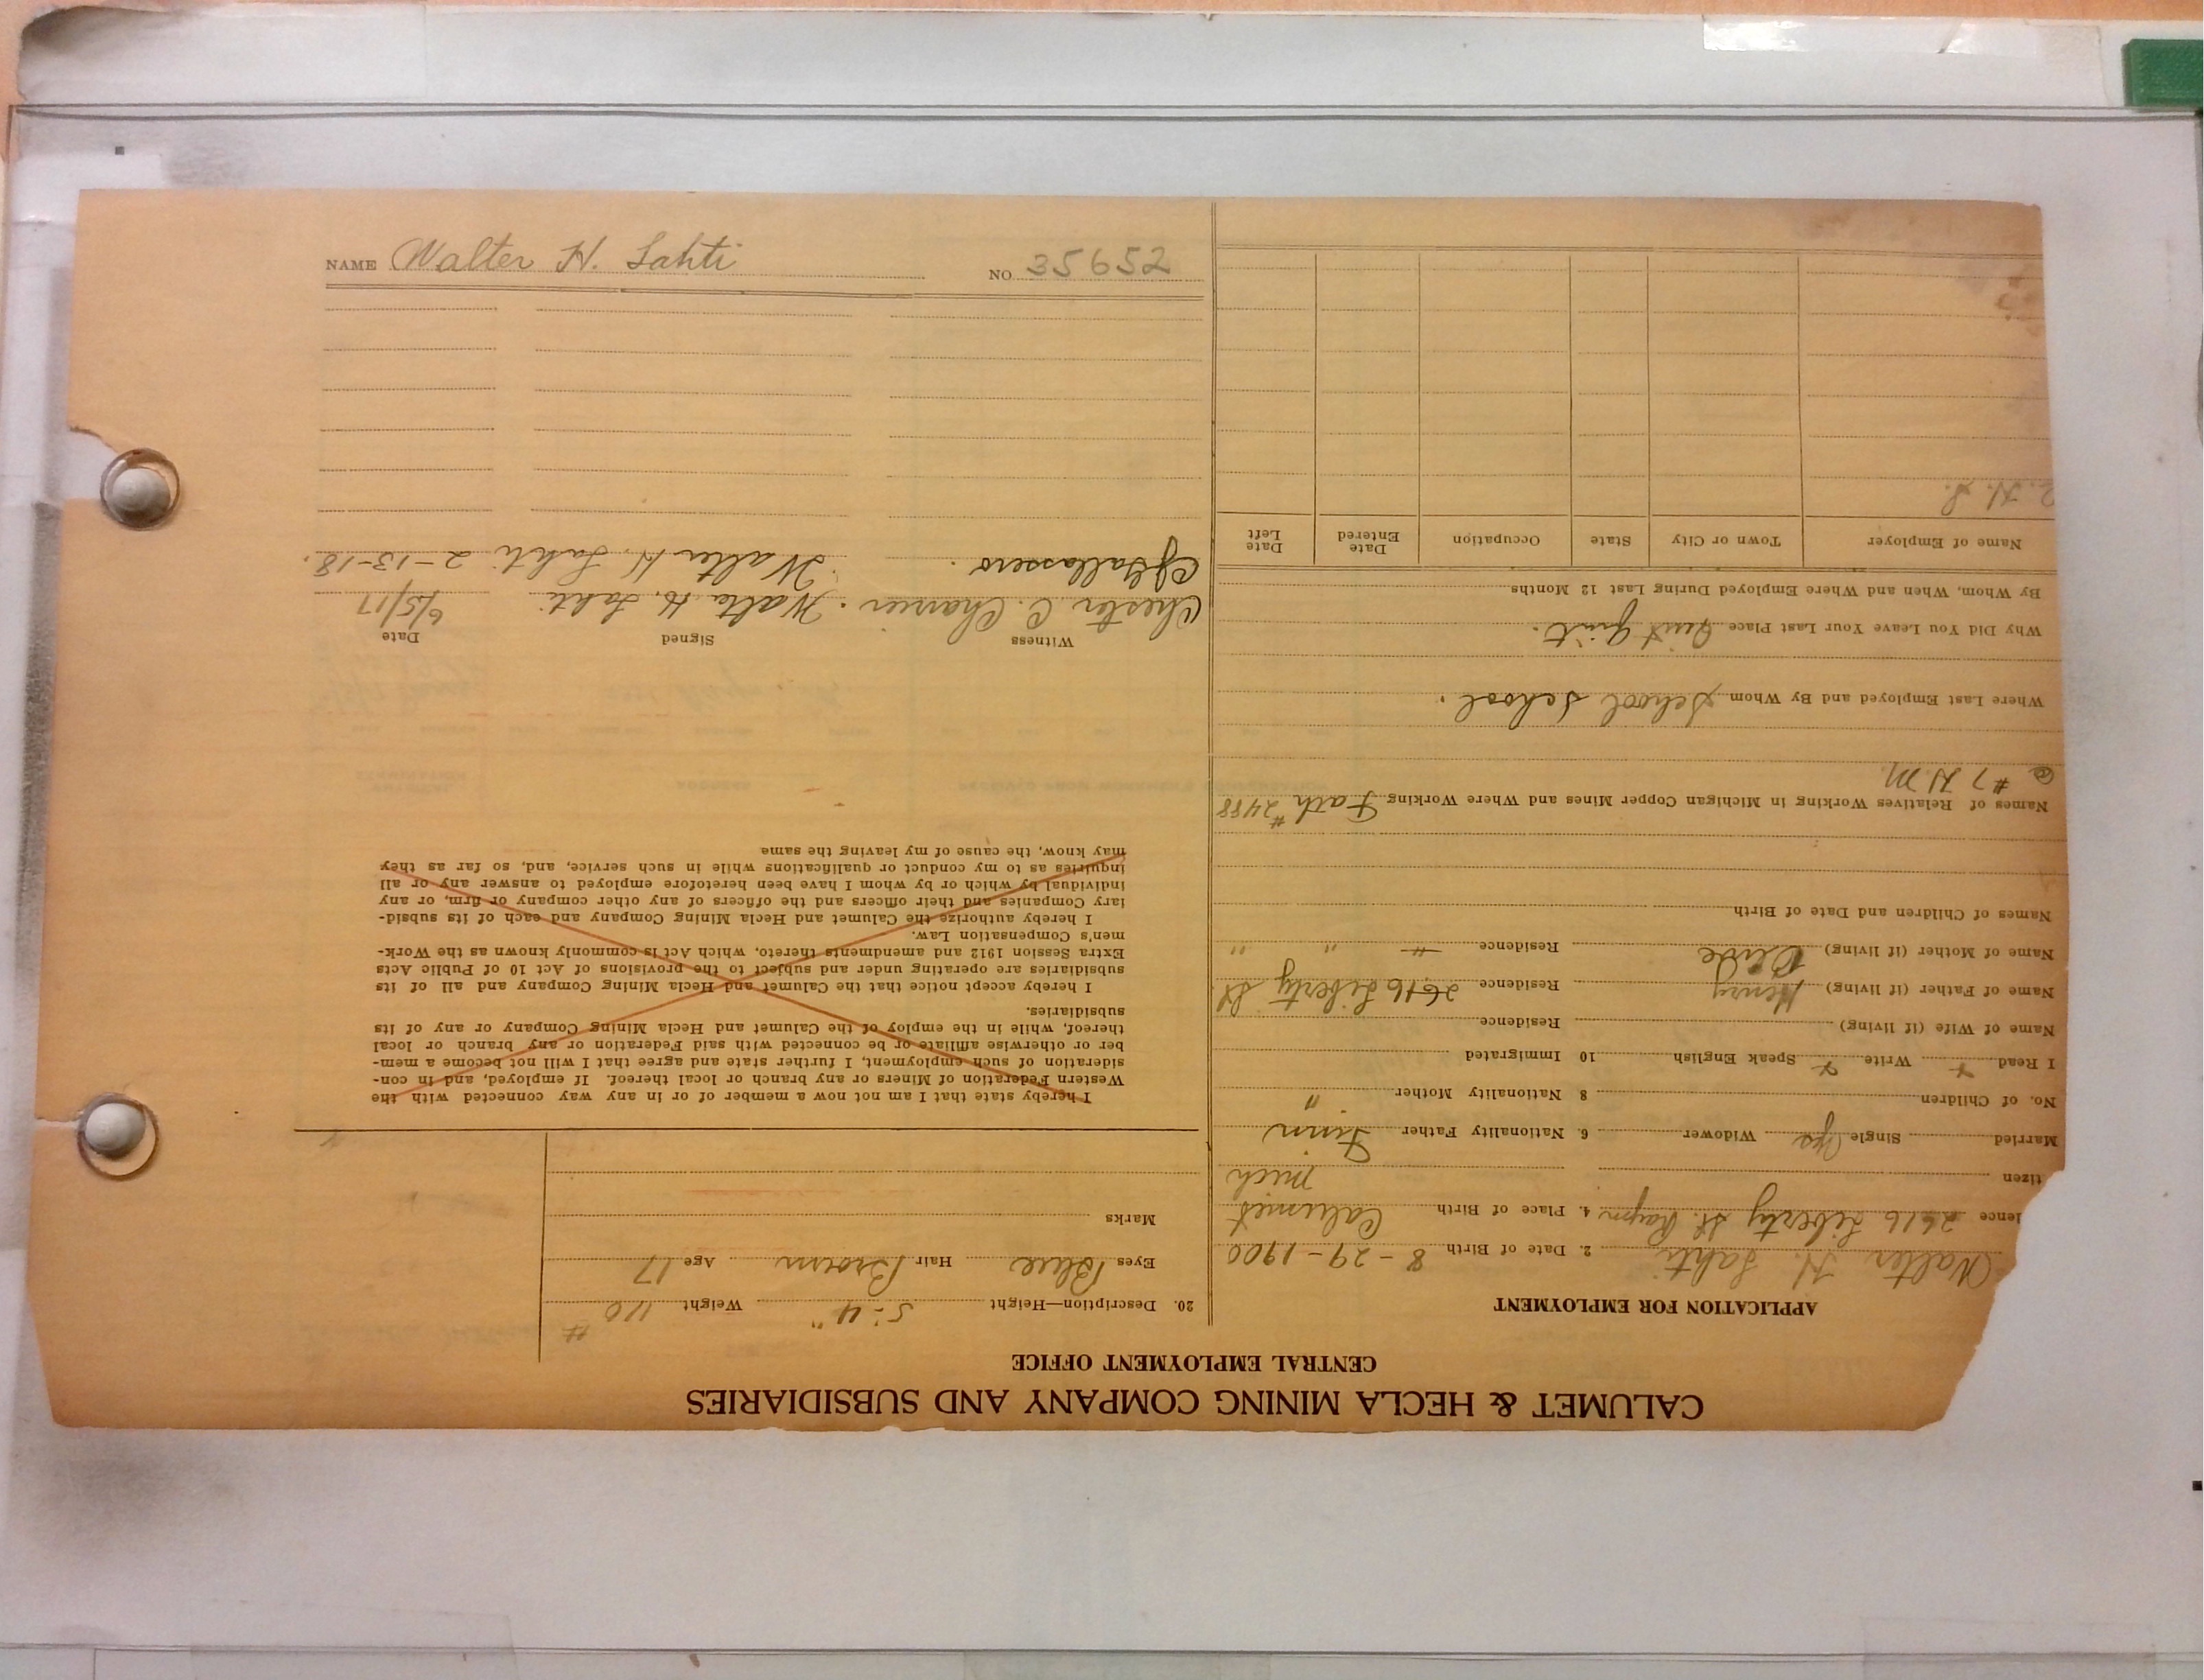 CALUMET & HECLA MINING COMPANY AND SUBSIDIARIES
CENTRAL EMPLOYMENT OFFICE
APPLICATION FOR EMPLOYMENT
Walter H. Lahti 2. Date of Birth 8-29-1900
dence 2616 Liberty St. Raym 4. Place of Birth Calumet
tizen Mich
Married Single Yes Widower 6. Nationality Father Finn
No. of Children 8 Nationality Mother "
I Read Write Speak English 10 Immigrated
Name of Wife (if living) Residence
Name of Father (if living) Henry Residence 2616 Liberty St.
Name of Mother (if living) Residence " " "
Names of Children and Date of Birth
Names of Relatives Working in Michigan Copper Mines and Where Working Fath #2488
@ #7 H.M.
Where Last Employed and By Whom School School.
Why Did You Leave Your Last Place Just Quit.
By Whom, When and Where Employed During Last 12 Months
Name of Employer Town or City State Occupation Date Entered Date Left
20. Description—Height 5:4" Weight 110 #
Eyes Blue Hair Brown Age 17
Marks
I hereby state that I am not now a member of or in any way connected with the
Western Federation of Miners or any branch or local thereof. If employed, and in con-
sideration of such employment, I further state and agree that I will not become a mem-
ber or otherwise affiliate or be connected with said Federation or any branch or local
thereof, while in the employ of the Calumet and Hecla Mining Company or any of its
subsidiaries.
I hereby accept notice that the Calumet and Hecla Mining Company and all of its
subsidiaries are operating under and subject to the provisions of Act 10 of Public Acts
Extra Session 1912 and amendments thereto, which Act is commonly known as the Work-
men's Compensation Law.
I hereby authorize the Calumet and Hecla Mining Company and each of its subsid-
iary Companies and their officers and the officers of any other company or firm, or any
individual by which or by whom I have been heretofore employed to answer any or all
inquiries as to my conduct or qualifications while in such service, and, so far as they
may know, the cause of my leaving the same
Witness Signed Date
Chester C. Walter H. Lahti 6/5/17
Walter H. Lahti 2-13-18.
NAME Walter H. Lahti NO 35652